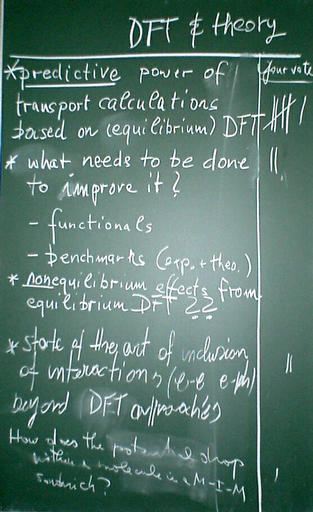 DFT & theory
your vote
* predictive power of
transport calculations
based on (equilibrium) DFT
* what needs to be done
to improve it?
- functionals
- benchmarks (exp. + theo.)
* nonequilibrium effects from
equilibrium DFT ??
* state of the art of inclusion
of interactions (e-e e-ph)
beyond DFT approaches
How does the potential drop
within a molecule in a M-I-M
sandwich?